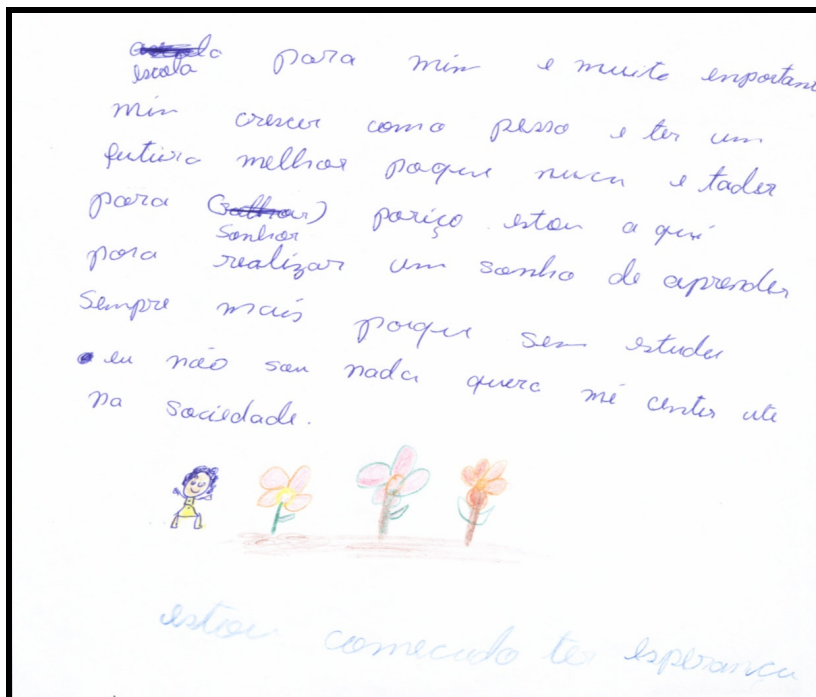 escola para min e muito enportan
min crescer como pesso e ter um
futuro melhor poque nuca e tader
para sonhar poriço estou a qui
para realizar um sonho de aprender
sempre mais porque sem estudu
eu não sou nada quero me center ute
na sociedade.
estou comecado ter esperança